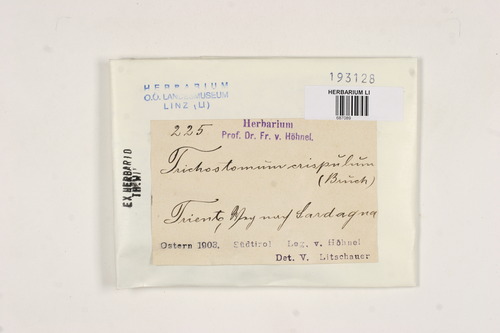 193128
HERBARIUM
O.Ö. LANDESMUSEUM
LINZ (LI)
HERBARIUM LI
225
Herbarium
Prof. Dr. Fr. v. Höhnel.
Trichostomum crispulum
(Bruch)
Trient, Weg nach Sardagna
Ostern 1902. Südtirol Leg. v. Höhnel
Det. V. Litschauer
EX HERBARIO